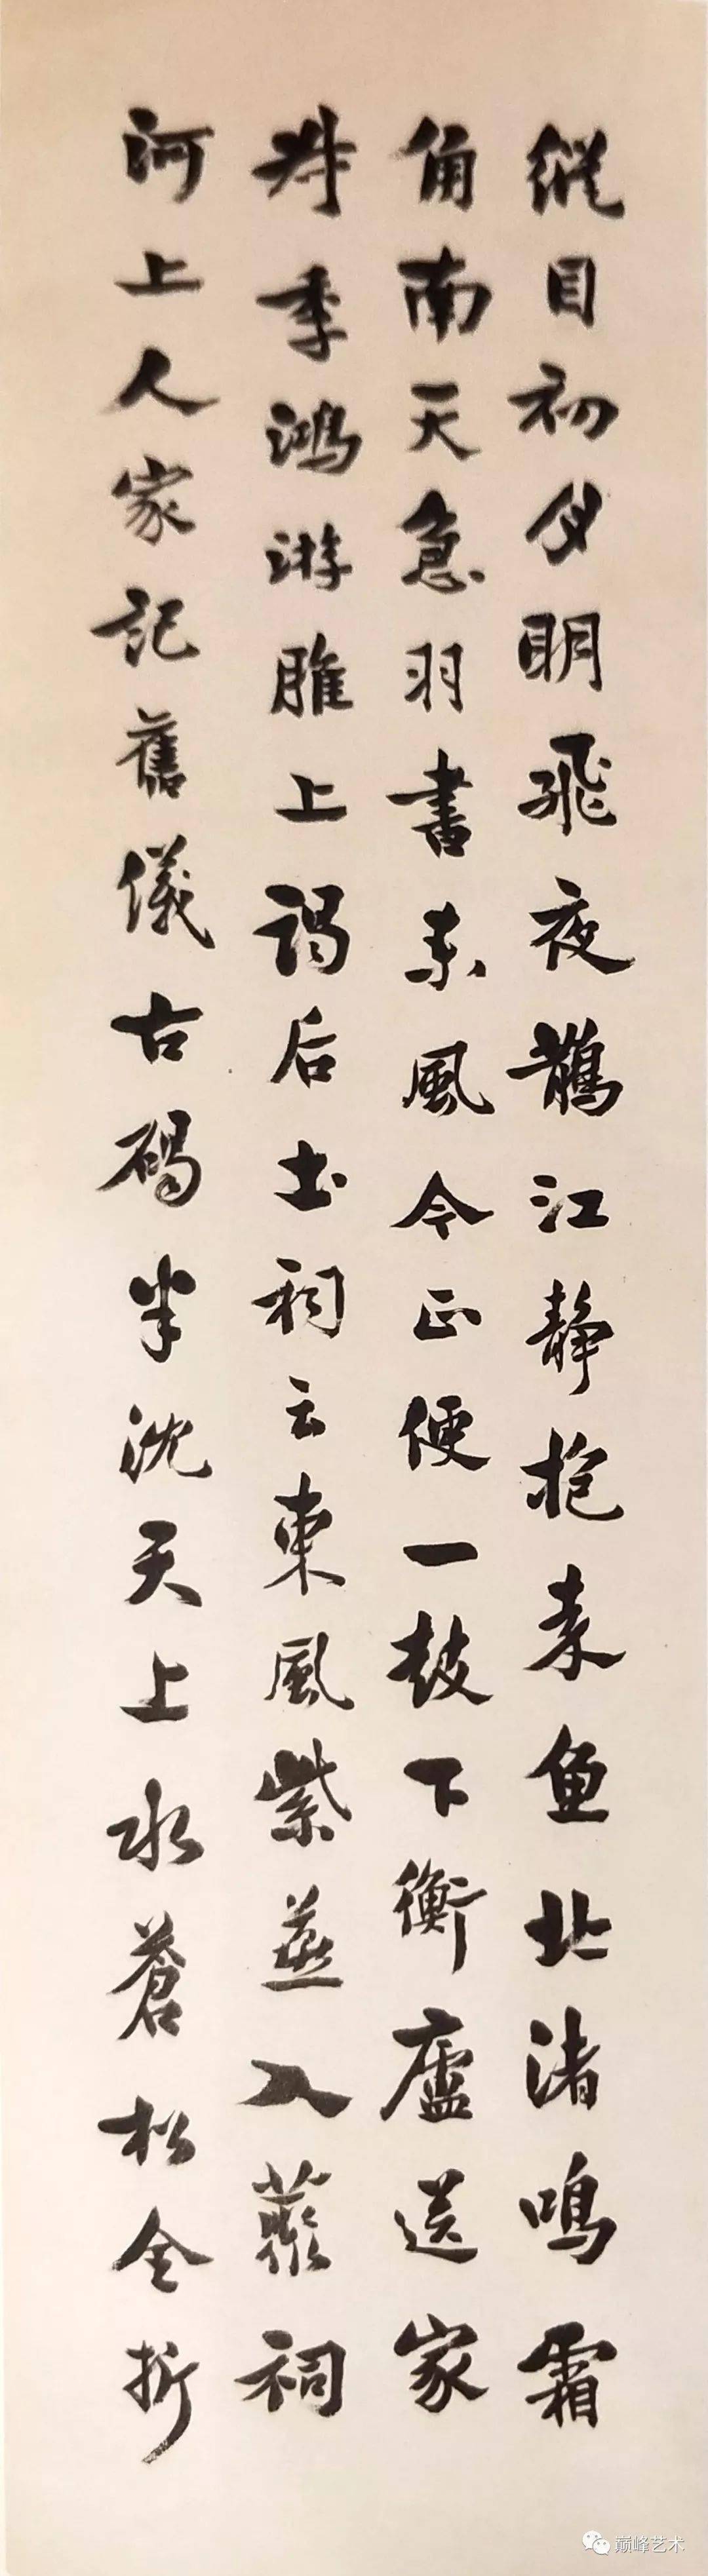 縱目初夕明飛夜鵲江静抱素鱼北渚鳴霜
角南天急羽書東風今正便一鼓下衡廬送家
季鴻游脽上謁后土祠云東風紫燕入叢祠
河上人家記舊儀古碣半沈天上水蒼松全折
巅峰艺术